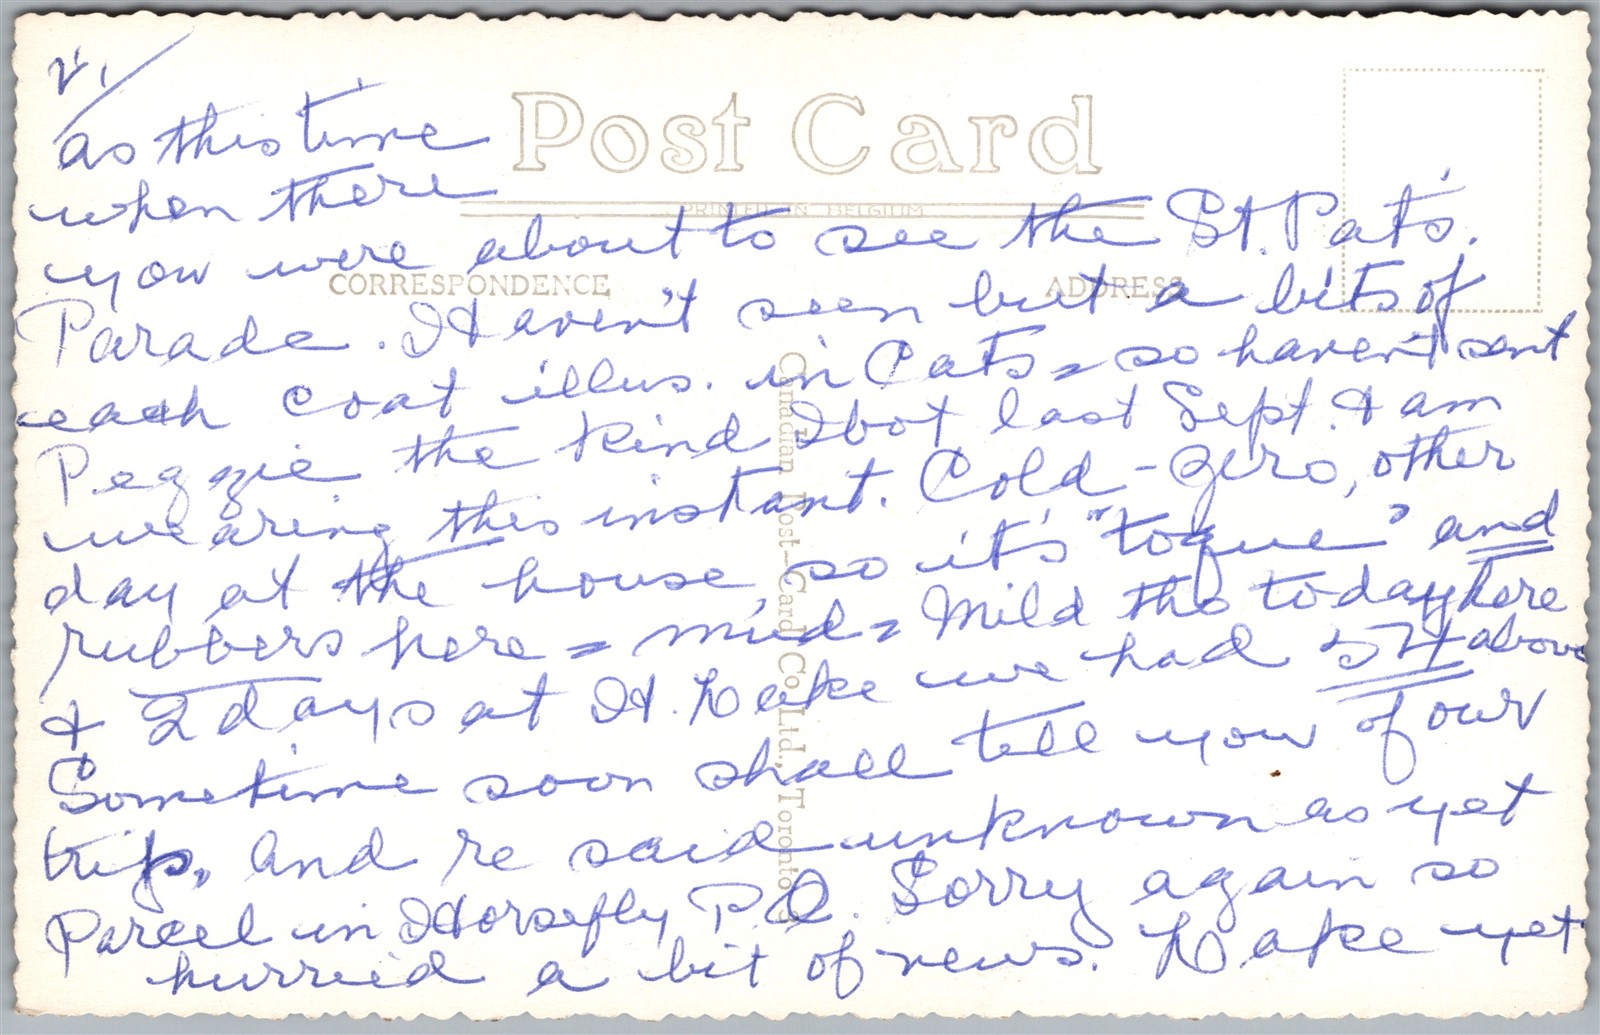 2./
Post Card
PRINTED IN BELGIUM
CORRESPONDENCE
ADDRESS
Canadian Post-Card Co. Ltd., Toronto
as this time
when there
you were about to see the St. Pat's.
Parade. Haven't seen but a bits of
each coat illus. in Cats = so haven't sent
Peggie the kind I bot last Sept. & am
wearing this instant. Cold - zero, other
day at the house, so it's "toque" and
rubbers here = mud = Mild tho today here
& 2 days at H. Lake we had 54 above
Sometime soon shall tell you of our
trip, and re said unknown as yet
Parcel in Horsefly P.O. Sorry again so
hurried a bit of news. Lake yet